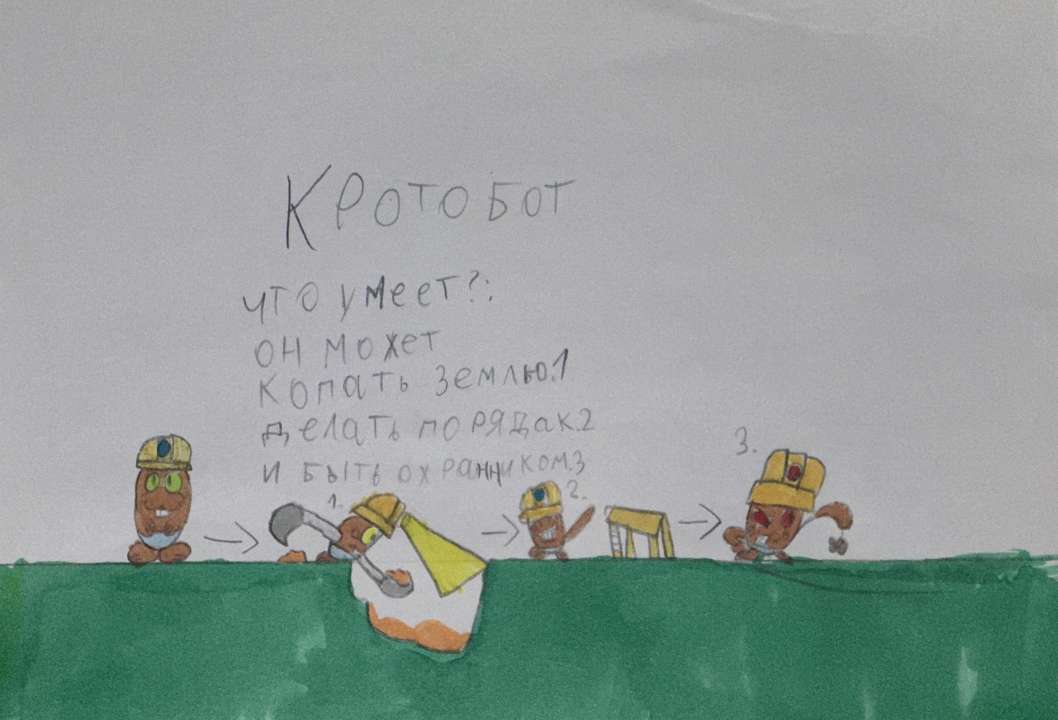 Кротобот
что умеет?:
он может
копать землю.1
делать порядак.2
и быть охранником.3
1.
2.
3.